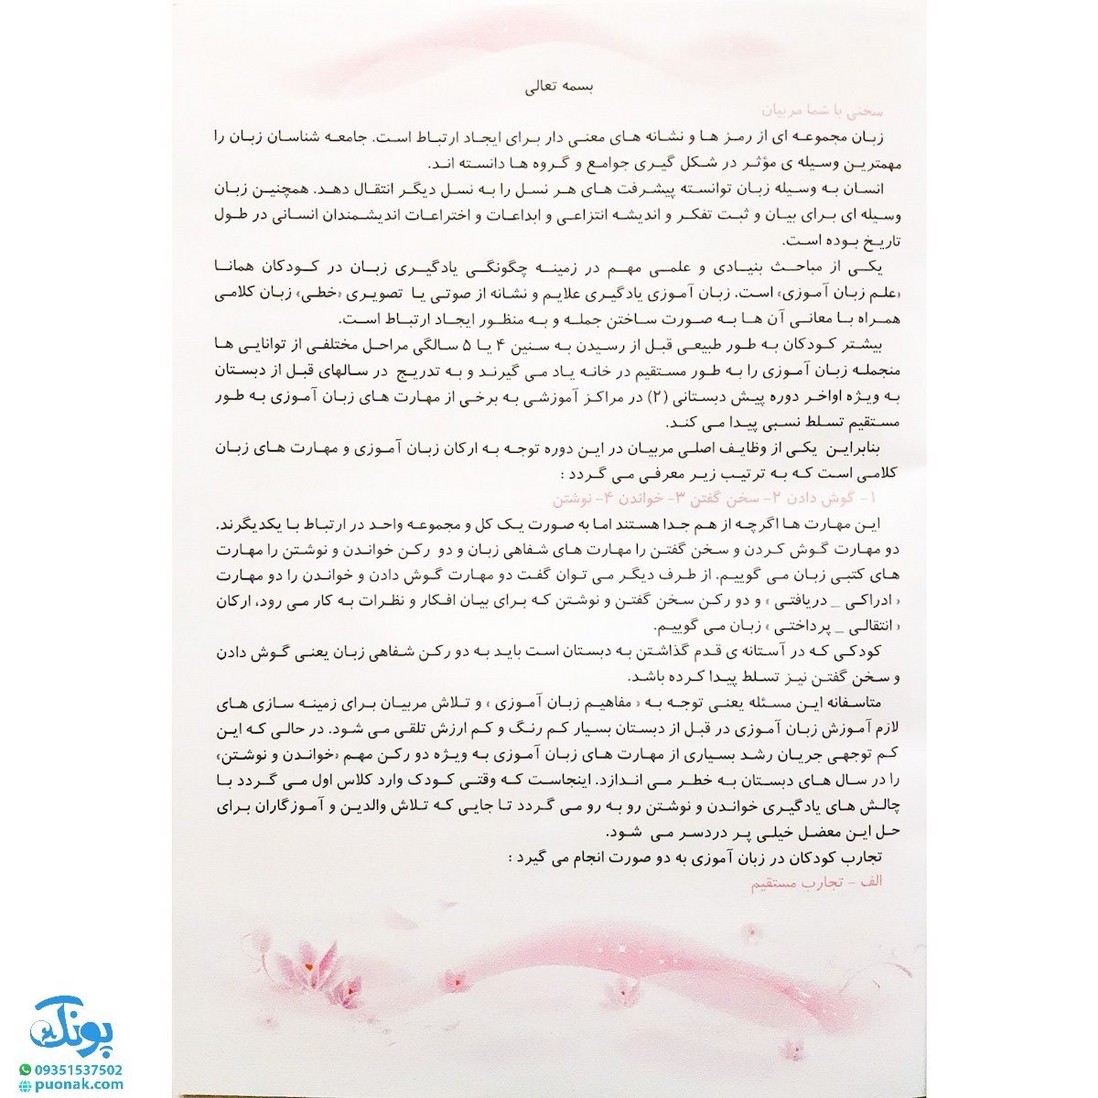 بسمه تعالی
سخنی با شما مربیان
زبان مجموعه ای از رمز ها و نشانه های معنی دار برای ایجاد ارتباط است. جامعه شناسان زبان را
مهمترین وسیله ی مؤثر در شکل گیری جوامع و گروه ها دانسته اند.
انسان به وسیله زبان توانسته پیشرفت های هر نسل را به نسل دیگر انتقال دهد. همچنین زبان
وسیله ای برای بیان و ثبت تفکر و اندیشه انتزاعی و ابداعات و اختراعات اندیشمندان انسانی در طول
تاریخ بوده است.
یکی از مباحث بنیادی و علمی مهم در زمینه چگونگی یادگیری زبان در کودکان همانا
«علم زبان آموزی» است. زبان آموزی یادگیری علایم و نشانه از صوتی یا تصویری «خطی» زبان کلامی
همراه با معانی آن ها به صورت ساختن جمله و به منظور ایجاد ارتباط است.
بیشتر کودکان به طور طبیعی قبل از رسیدن به سنین ۴ یا ۵ سالگی مراحل مختلفی از توانایی ها
منجمله زبان آموزی را به طور مستقیم در خانه یاد می گیرند و به تدریج در سالهای قبل از دبستان
به ویژه اواخر دوره پیش دبستانی (۲) در مراکز آموزشی به برخی از مهارت های زبان آموزی به طور
مستقیم تسلط نسبی پیدا می کند.
بنابراین یکی از وظایف اصلی مربیان در این دوره توجه به ارکان زبان آموزی و مهارت های زبان
کلامی است که به ترتیب زیر معرفی می گردد :
۱- گوش دادن ۲- سخن گفتن ۳- خواندن ۴- نوشتن
این مهارت ها اگرچه از هم جدا هستند اما به صورت یک کل و مجموعه واحد در ارتباط با یکدیگرند.
دو مهارت گوش کردن و سخن گفتن را مهارت های شفاهی زبان و دو رکن خواندن و نوشتن را مهارت
های کتبی زبان می گوییم. از طرف دیگر می توان گفت دو مهارت گوش دادن و خواندن را دو مهارت
« ادراکی _ دریافتی » و دو رکن سخن گفتن و نوشتن که برای بیان افکار و نظرات به کار می رود، ارکان
« انتقالی _ پرداختی » زبان می گوییم.
کودکی که در آستانه ی قدم گذاشتن به دبستان است باید به دو رکن شفاهی زبان یعنی گوش دادن
و سخن گفتن نیز تسلط پیدا کرده باشد.
متاسفانه این مسئله یعنی توجه به « مفاهیم زبان آموزی » و تلاش مربیان برای زمینه سازی های
لازم آموزش زبان آموزی در قبل از دبستان بسیار کم رنگ و کم ارزش تلقی می شود. در حالی که این
کم توجهی جریان رشد بسیاری از مهارت های زبان آموزی به ویژه دو رکن مهم «خواندن و نوشتن»
را در سال های دبستان به خطر می اندازد. اینجاست که وقتی کودک وارد کلاس اول می گردد با
چالش های یادگیری خواندن و نوشتن رو به رو می گردد تا جایی که تلاش والدین و آموزگاران برای
حل این معضل خیلی پر دردسر می شود.
تجارب کودکان در زبان آموزی به دو صورت انجام می گیرد :
الف - تجارب مستقیم
پونک
09351537502
puonak.com